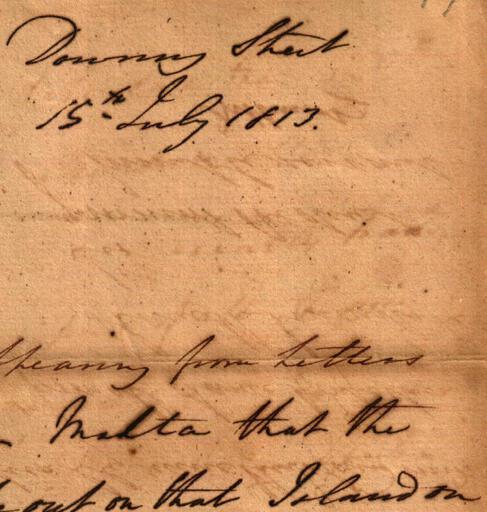 Downing Street
15th July 1813.
ppearing from Letters
Malta that the
out on that Island on